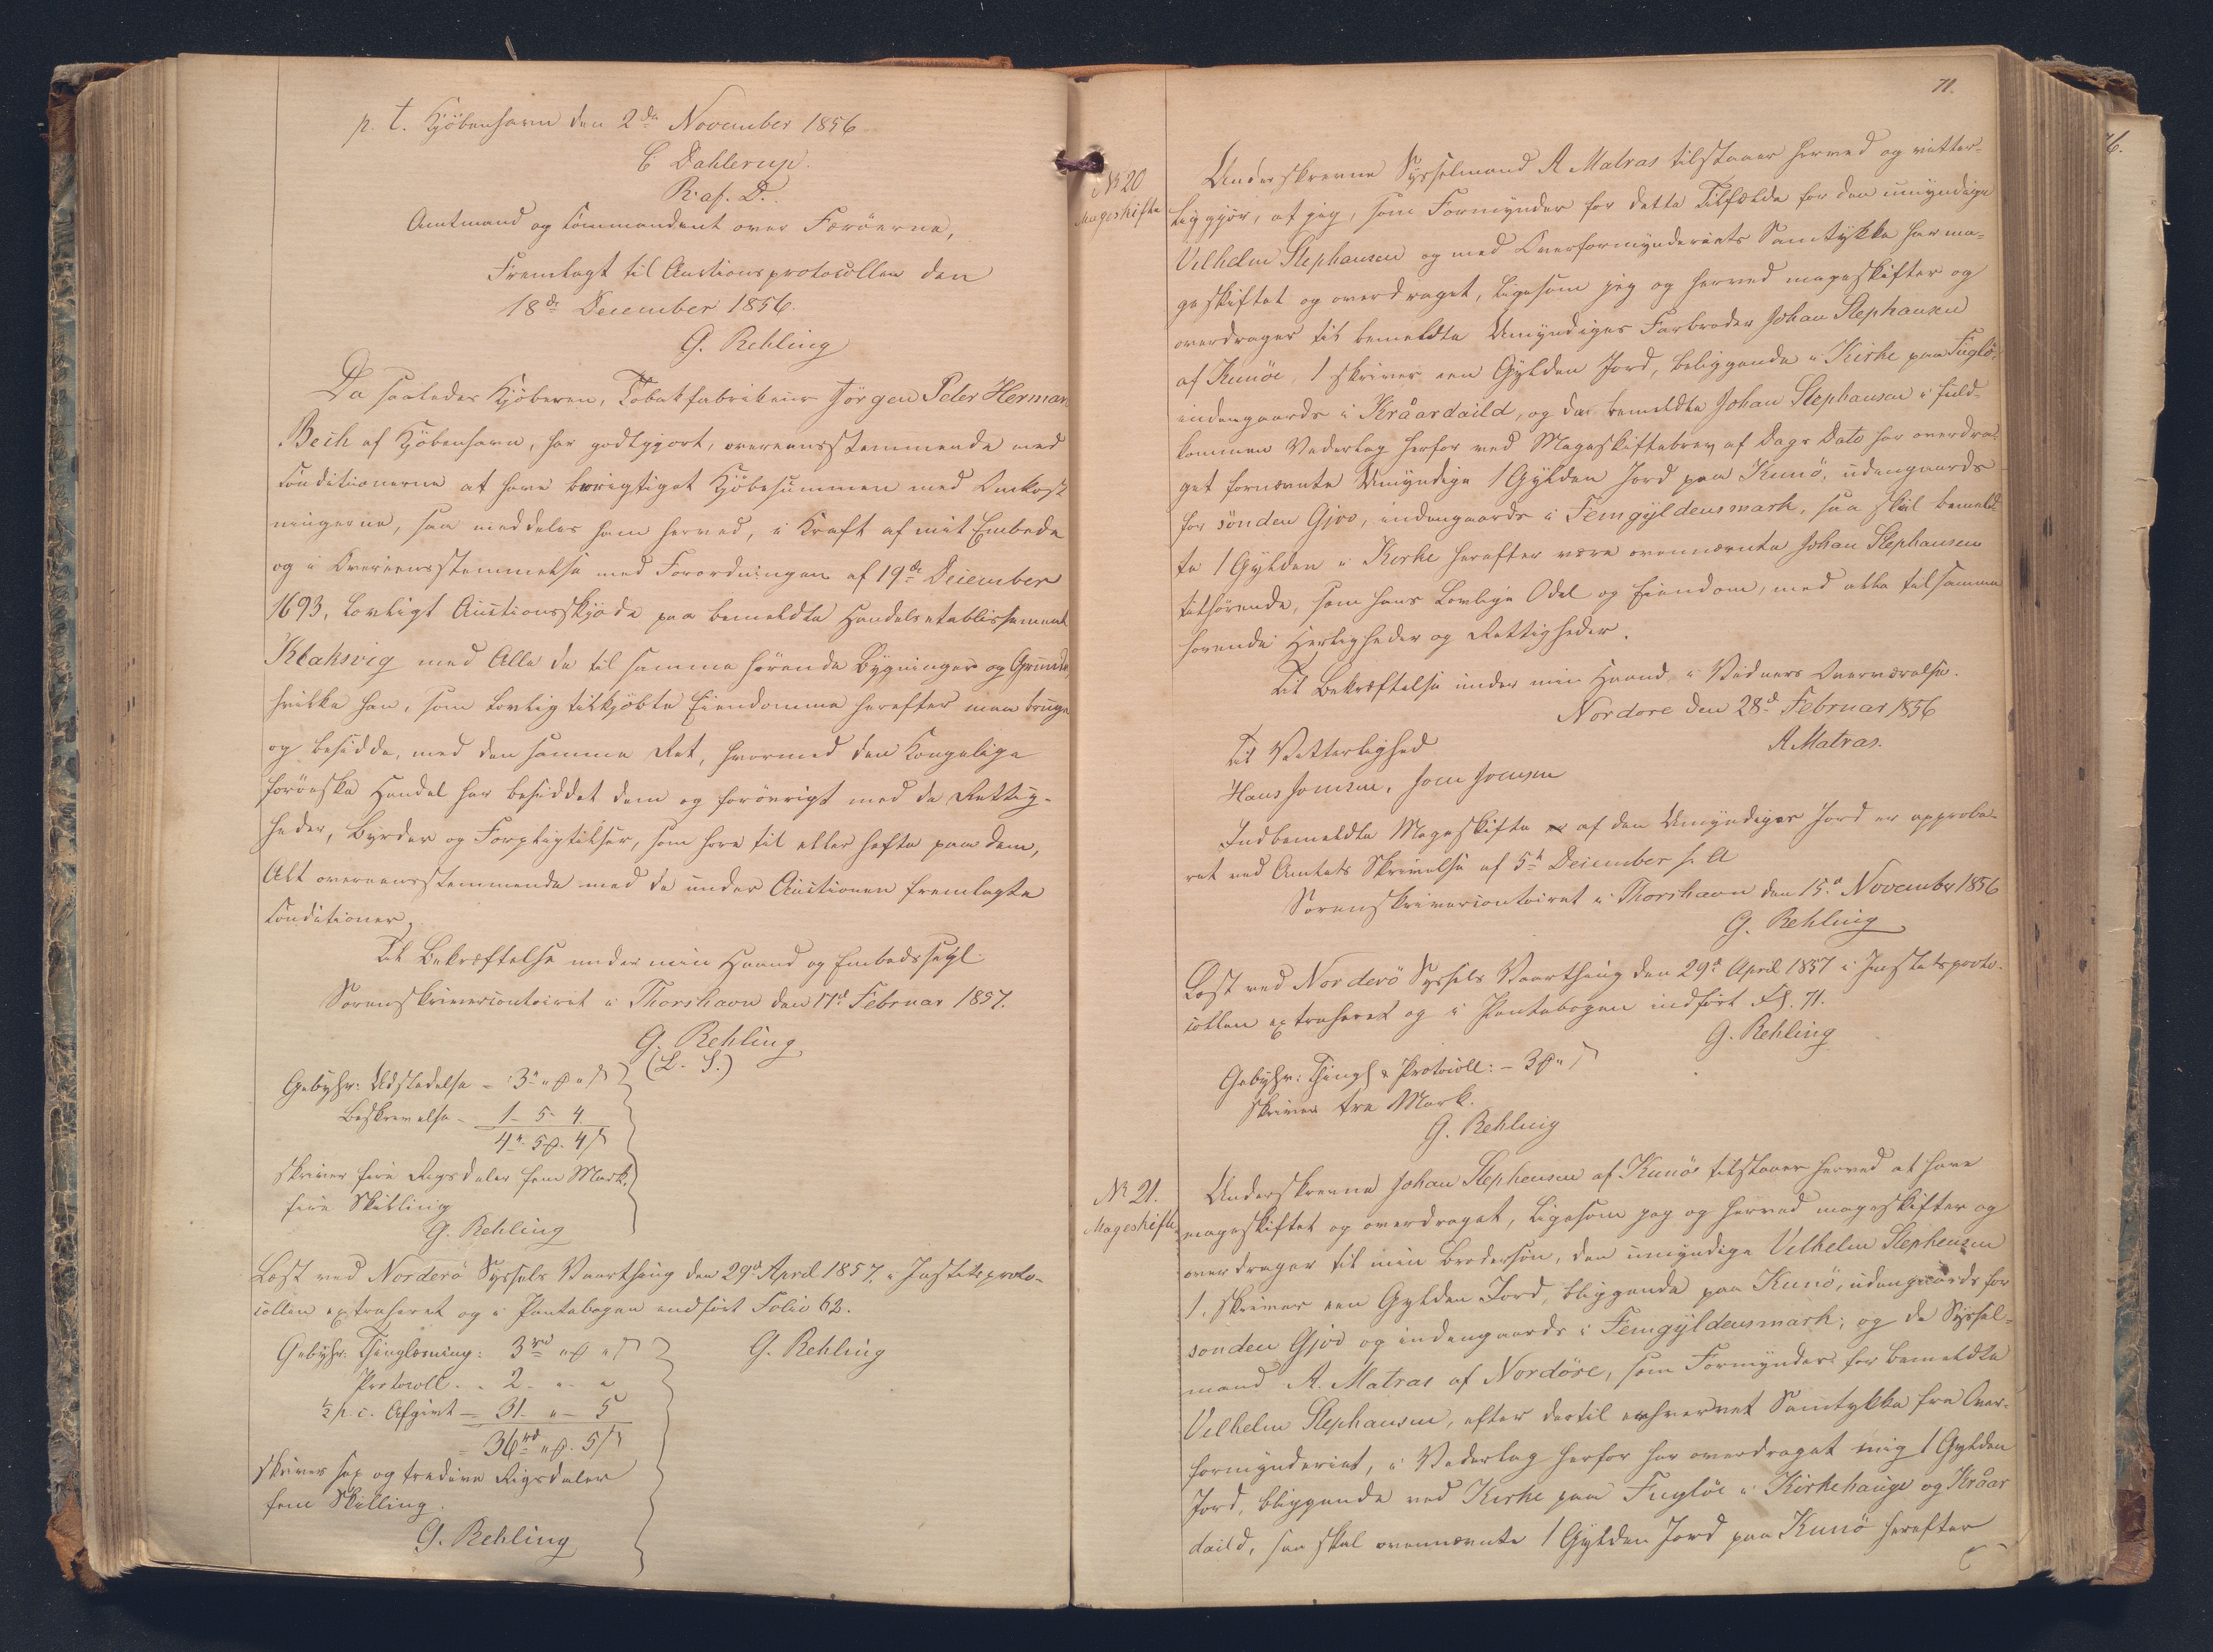 p. t. Kjöbenhavn den 2den November 1856
C Dahlerup.
R. af. D.
Amtmand og Commandant over Færöerne,
Fremlagt til Auctionsprotocollen den
18de December 1856.
G. Rehling
Da saaledes Kjöberen, Tobakfabrikeur Jörgen Peter Herman
Bech af Kjöbenhavn, har godtgjort, overeensstemmende med
Conditionerne at have berigtiget Kjöbesummen med Omkost
ningerne, saa meddeles ham herved, i Kraft af mit Embede
og i Overeensstemmelse med Forordningen af 19de December
1693, lovligt Auctionsskjöde paa bemeldte Handelsetablissement
Klaksvig med Alle de til samme hörende Bygninger og Grunde,
hvilke han, som lovlig tilkjöbte Eiendomme herefter maa bruge
og besidde, med den samme Ret, hvormed den Kongelige
færöeske Handel har besiddet dem og forövrigt med de Rettig-
heder, Byrder og Forpligtelser, som høre til eller hefte paa dem,
Alt overeensstemmende med de under Auctionen fremlagte
Conditioner.
Til Bekræftelse under min Haand og Embedssegl.
Sorenskrivercontoiret i Thorshavn den 17d Februar 1857.
G. Rehling
(L. S.)
Gebyhr: Udstedelse - 3rd " ß " s
Beskrivelse - 1 - 5 - 4
4rd 5ß. 4s
skriver fire Rigsdaler fem Mark
fire Skilling
G. Rehling
Læst ved Norderö Syssels Vaarthing den 29d April 1857, i Justitsproto-
collen extraheret og i Pantebogen indført Folio 62.
Gebyhr: Thinglæsning: 3rd " ß " s
G. Rehling
Protocoll - 2 - " - "
½ p. c. Afgivt - 31 - " - 5
36rd " ß. 5s
skriver sex og tredive Rigsdaler
fem Skilling.
G. Rehling
71.
No 20
Mageskifte
Underskrevne Sysselmand A Matras tilstaaer herved og vitter-
liggjør, at jeg, som Formynder for dette Tilfælde for den umyndige
Vilhelm Stephansen og med Overformynderiets Samtykke har ma-
geskiftet og overdraget, ligesom jeg og herved mageskifter og
overdrager til bemeldte Umyndiges Farbroder Johan Stephansen
af Kunöe, 1 skriver een Gylden Jord, beliggende i Kirke paa Fuglö,
indengaards i Kråardaild, og da bemeldte Johan Stephansen i fuld-
kommen Vederlag herfor ved Mageskiftebrev af Dags Dato har overdra-
get fornævnte Umyndige 1 Gylden Jord paa Kunö, udengaards
for sönden Gjov, indengaards i Femgyldensmark, saa skal bemeld-
te 1 Gylden i Kirke herefter være ovennævnte Johan Stephansen
tilhörende, som hans lovlige Odel og Eiendom, med alle tilsamme
hørende Herligheder og Rettigheder.
Til Bekræftelse under min Haand i Vidners Overværelse.
Nordore den 28d Februar 1856
A Matras.
Til Vitterlighed
Hans Joensen, Joen Joensen
Indbemeldte Mageskifte af den Umyndiges Jord er approbe-
ret ved Amtets Skrivelse af 5t December f. A
Sorenskrivercontoiret i Thorshavn den 15d November 1856
G. Rehling
Læst ved Norderö Syssels Vaarthing den 29d April 1857 i Justitsproto-
collen extraheret og i Pantebogen indfört Fol. 71.
G. Rehling
Gebyhr: Thingl & Protocoll: - 3ß " s
skriver tre Mark.
G. Rehling
No 21.
Mageskifte
Underskrevne Johan Stephensen af Kunöe tilstaaer herved at have
mageskiftet og overdraget, ligesom jeg og herved mageskifter og
overdrager til min Brodersøn, den umyndige Vilhelm Stephensen
1, skriver een Gylden Jord, bliggende paa Kunö, udengaards for
sonden Gjov og indengaards i Femgyldensmark; og da Syssel-
mand A. Matras af Nordöre, som Formynder for bemeldte
Vilhelm Stephansen, efter dertil erhvervet Samtykke fra Over-
formynderiet, i Vederlag herfor har overdraget mig 1 Gylden
Jord, bliggende ved Kirke paa Fuglöe i Kirkehauge og Kråar
daild, saa skal ovennævnte 1 Gylden Jord paa Kunö herefter